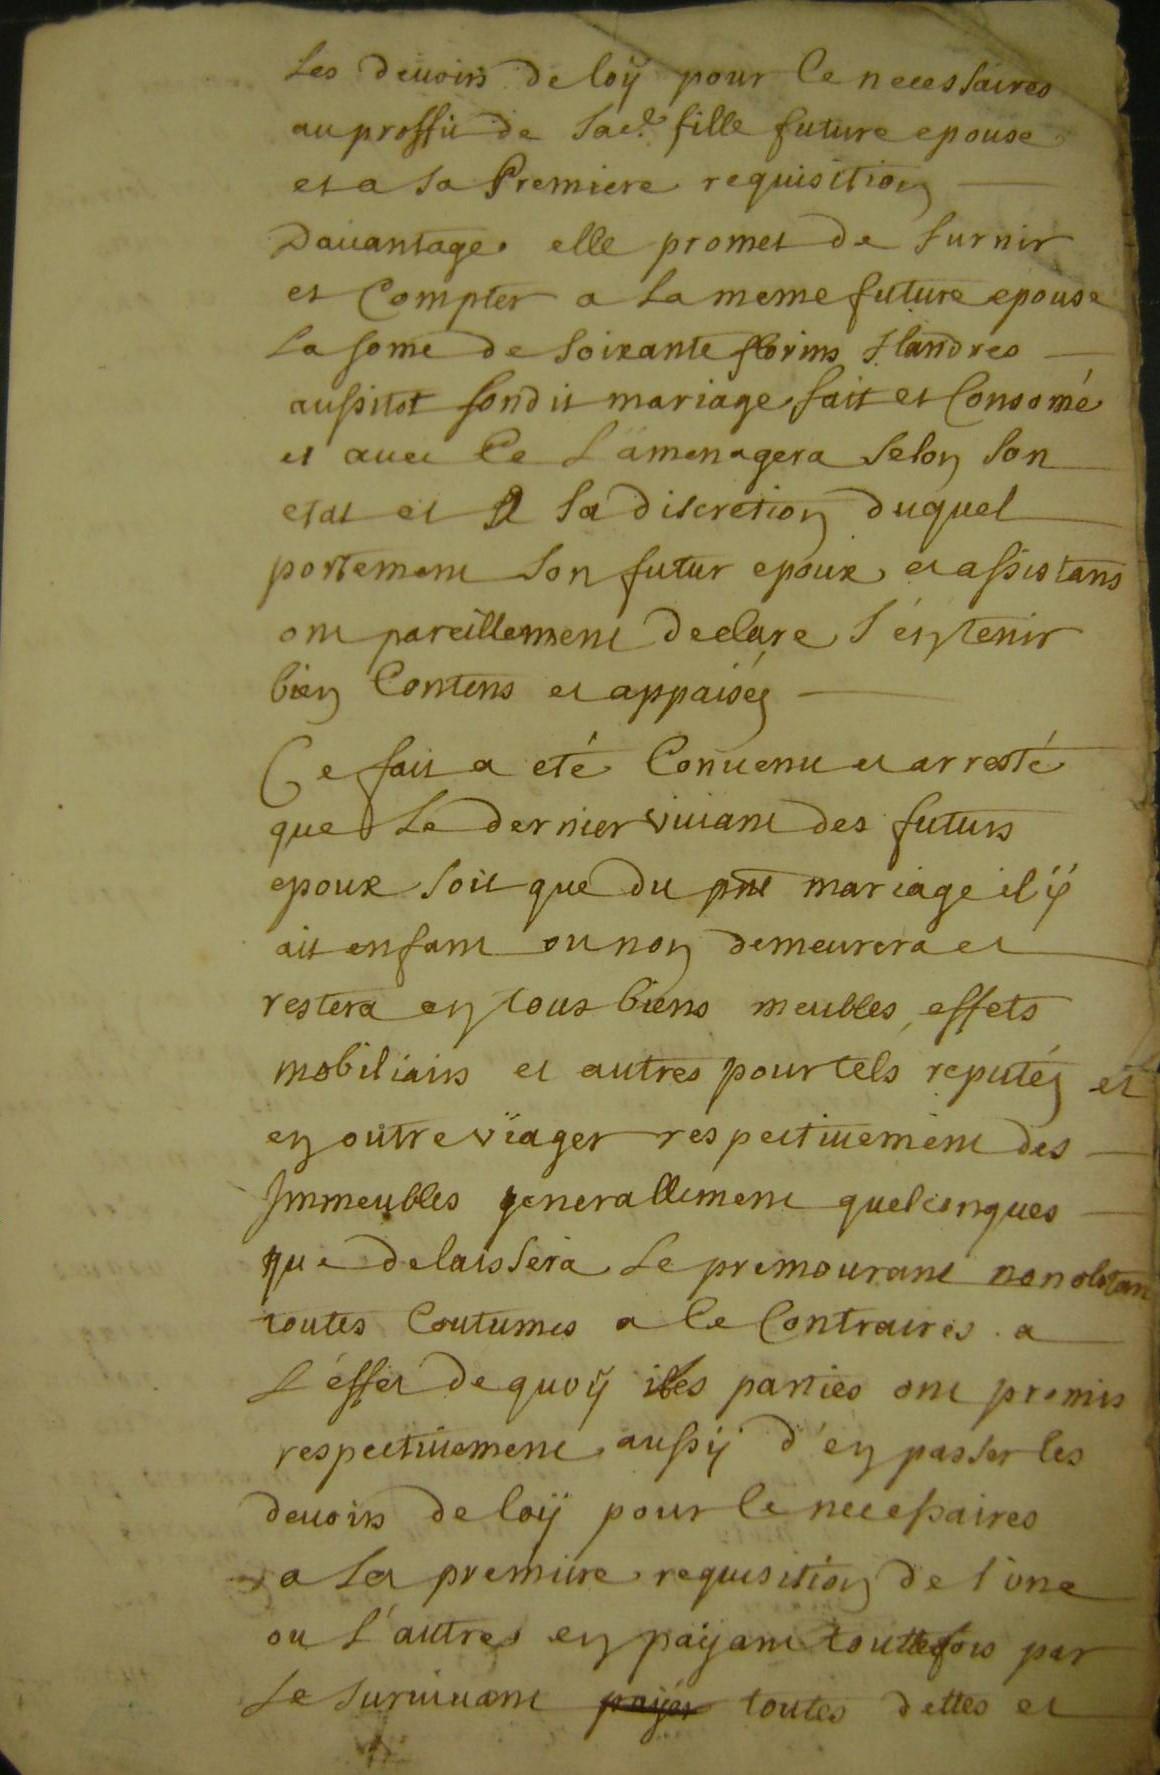 Les devoirs de loÿ pour ce necessaires
au proffit de sad.e fille future epouse
et a sa Premiere requisition
Davantage elle promet de furnir
et Compter a la meme future epouse
La some de soixante florins flandres
aussitot sondit mariage fait et Consomé
et avec ce L'amenagera selon son
etat et a sa discretion duquel
portement son futur epoux et assistans
ont pareillement declare s'én tenir
bien Contens et appaisés
Ce fait a eté Convenu et arresté
que Le dernier vivant des futurs
epoux soit que du pnt mariage il ÿ
ait enfant ou non demeurera et
restera en tous biens meubles, effets
mobiliairs et autres pour tels reputés et
en outre viager respectivement des
Immeubles generallement quelconques
que delaissera Le premourant nonobstan
toutes Coutumes a ce Contraires a
L'éffet de quoÿ les parties ont promis
respectivement aussÿ d'én passer les
devoirs de loÿ pour ce necessaires
a La premiere requisition de l'une
ou L'autres en paÿant touttefois par
Le survivant payer toutes dettes et